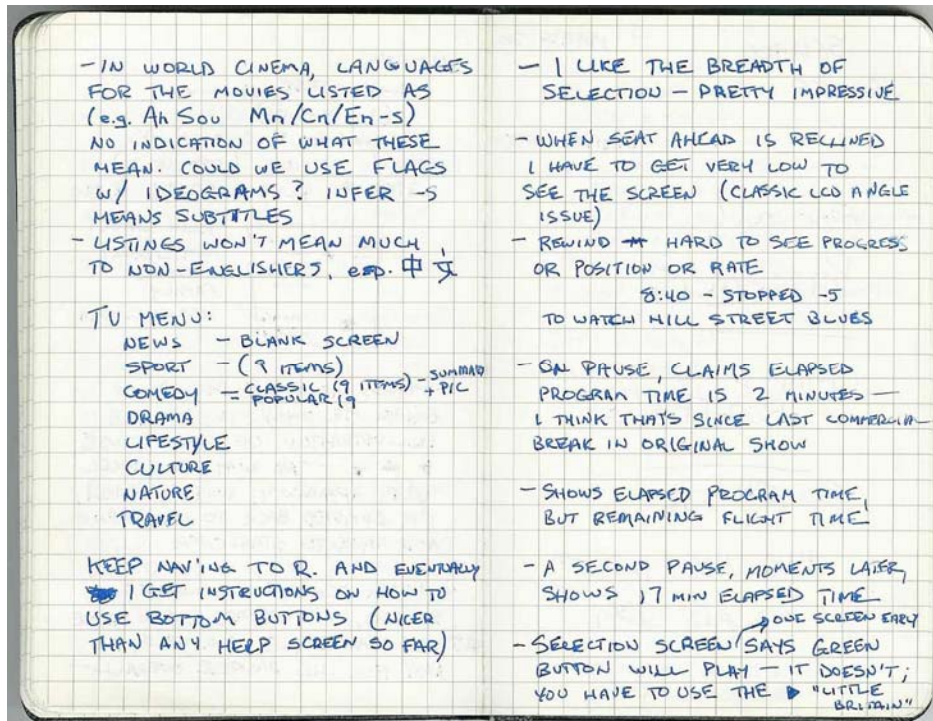 - IN WORLD CINEMA, LANGUAGES
FOR THE MOVIES LISTED AS
(e.g. Ah Sou Mn/Cn/En-s)
NO INDICATION OF WHAT THESE
MEAN. COULD WE USE FLAGS
W/ IDEOGRAMS? INFER -S
MEANS SUBTITLES
- LISTINGS WON'T MEAN MUCH
TO NON-ENGLISHERS, esp. 中文
TV MENU:
NEWS - BLANK SCREEN
SPORT - (9 ITEMS)
COMEDY - CLASSIC (9 ITEMS) - SUMMARY + PIC
- POPULAR (9
DRAMA
LIFESTYLE
CULTURE
NATURE
TRAVEL
KEEP NAV'ING TO R. AND EVENTUALLY
I GET INSTRUCTIONS ON HOW TO
USE BOTTOM BUTTONS (NICER
THAN ANY HELP SCREEN SO FAR)
- I LIKE THE BREADTH OF
SELECTION - PRETTY IMPRESSIVE
- WHEN SEAT AHEAD IS RECLINED
I HAVE TO GET VERY LOW TO
SEE THE SCREEN (CLASSIC LCD ANGLE
ISSUE)
- REWIND HARD TO SEE PROGRESS
OR POSITION OR RATE
8:40 - STOPPED -5
TO WATCH HILL STREET BLUES
- ON PAUSE, CLAIMS ELAPSED
PROGRAM TIME IS 2 MINUTES -
I THINK THAT'S SINCE LAST COMMERCIAL
BREAK IN ORIGINAL SHOW
- SHOWS ELAPSED PROGRAM TIME,
BUT REMAINING FLIGHT TIME
- A SECOND PAUSE, MOMENTS LATER,
SHOWS 17 MIN ELAPSED TIME
→ ONE SCREEN EARLY
- SELECTION SCREEN SAYS GREEN
BUTTON WILL PLAY - IT DOESN'T;
YOU HAVE TO USE THE ▶ "LITTLE
BRITAIN"